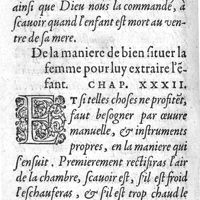 ainsi que Dieu nous la commandé, à
sçauoir quand l'enfant est mort au ven-
tre de sa mere.
De la maniere de bien situer la
femme pour luy extraire l'ē-
fant. CHAP. XXXII.
ET si telles choses ne profitēt,
faut besogner par œuure
manuelle, & instruments
propres, en la maniere qui
s'ensuit. Premierement rectifiras l'air
de la chambre, sçauoir est, s'il est froid
l'eschauferas, & s'il est trop chaud le